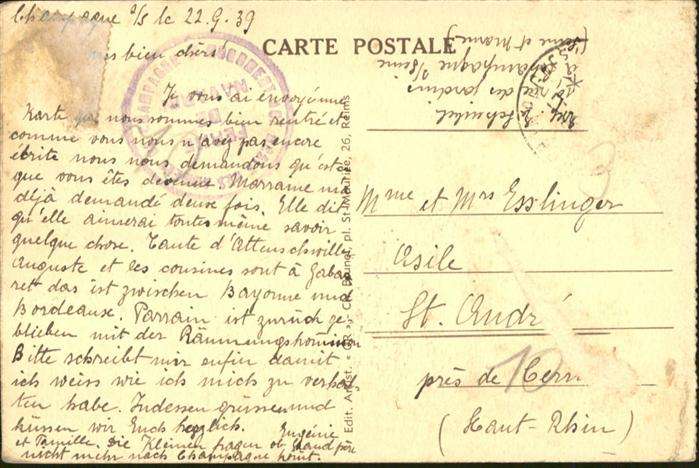 Champagne s/s le 22.9.39
mes bien chers
CARTE POSTALE
Je vous ai envoyé une
Karte que nous sommes bien rentré et
comme vous nous n'avez pas encore
écrite nous nous demandons qu'est-
que vous êtes devenue. Marrame me
déjà demandé deux fois. Elle dit
qu'elle aimerai toutes même savoir
quelque chose. Tante d'Attenschwiller
Auguste et les cousines sont à Gaba-
rett das ist zwischen Bayonne und
Bordeaux. Parrain ist zurück ge-
blieben mit der Räumungskommission
Bitte schreibt mir enfin damit
ich weiss wie ich mich zu verhal-
ten habe. Indessen grüssen und
küssen wir Euch herzlich. Eugénie
et famille. Die Kleinen fragen ob Grand père
nicht mehr nach Champagne komt.
Edit. Artist. CR. Brunet, pl. St-Maurice, 26, Reims
Scheibel
rue des jardins
Champagne s/Seine
(Seine et Marne)
Mme et Mrs Esslinger
Asile
St. André
près de Cern
(Haut-Rhin)